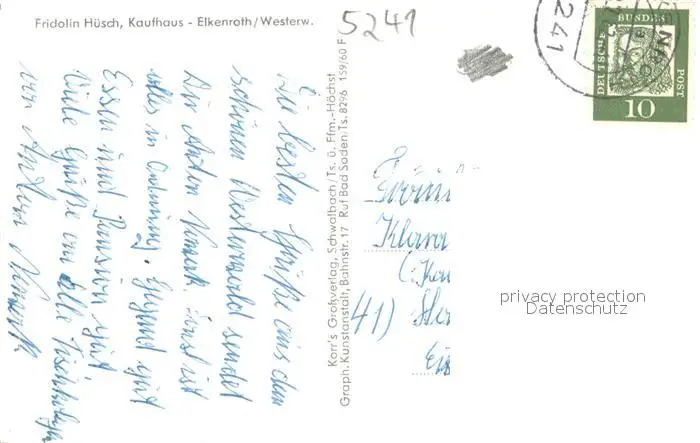 Fridolin Hüsch, Kaufhaus - Elkenroth/Westerw.
5241
241
DEUTSCHE BUNDES POST
10
Die besten Grüße aus dem
schönen Westerwald sendet
Dir Anton sonst ist
alles in Ordnung. Gegend gut
Essen und Pension gut
Viele Grüße an alle
von Anton
Korr's Großverlag, Schwalbach/Ts. ü. Ffm.-Höchst
Graph. Kunstanstalt, Bahnstr. 17 Ruf Bad Soden/Ts. 8296 159/60 F
41)
privacy protection
Datenschutz